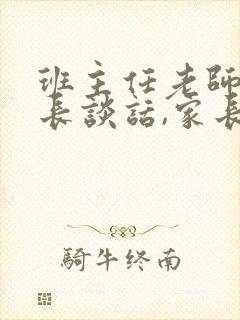 班主任老師
長談話,家長
騎牛终南